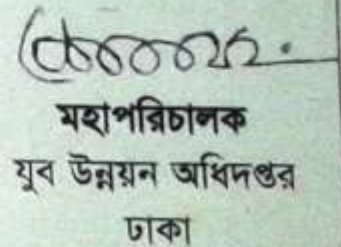 মহাপরিচালক
যুব উন্নয়ন অধিদপ্তর
ঢাকা